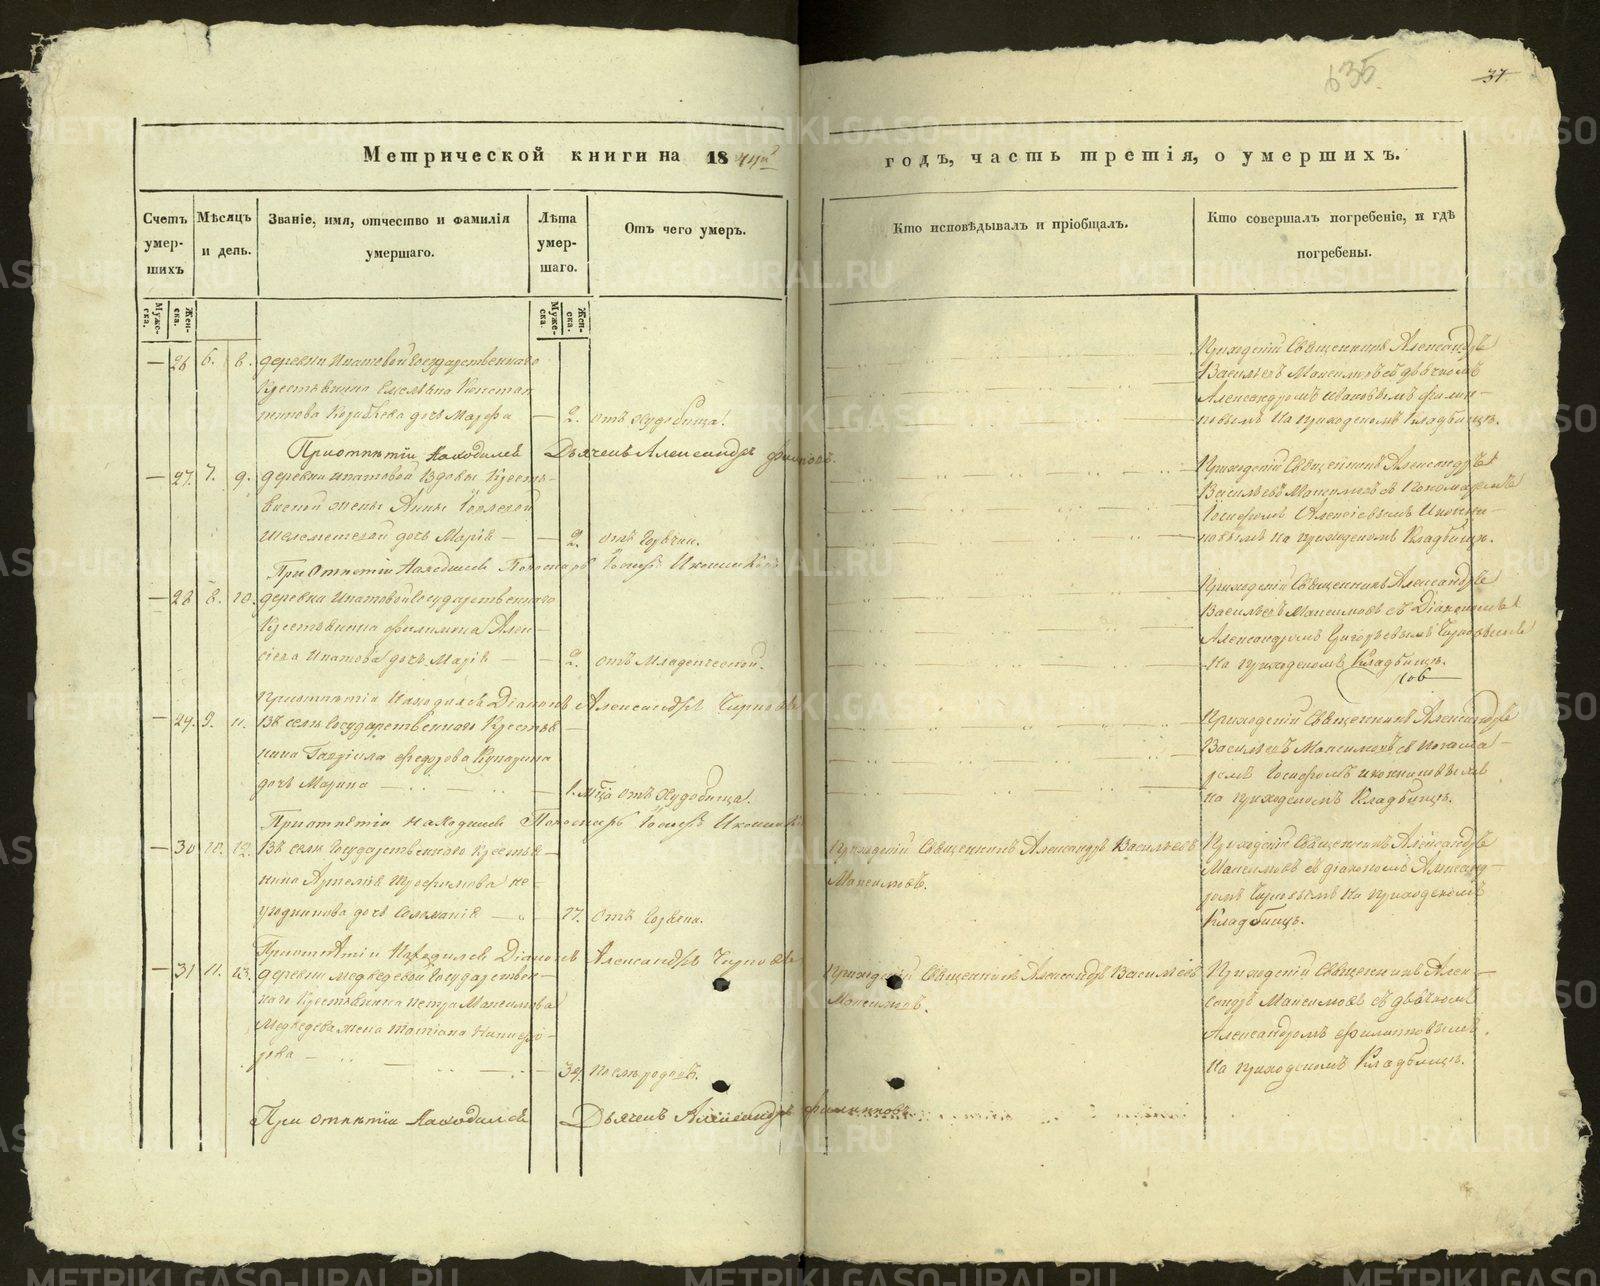 635.
37
Метрической книги на 1844й
годъ, часть третія, о умершихъ.
Счетъ умер- шихъ
Мѣсяцъ и день.
Званіе, имя, отчество и фамилія умершаго.
Лѣта умер- шаго.
Отъ чего умеръ.
Кто исповѣдывалъ и пріобщалъ.
Кто совершалъ погребеніе, и гдѣ погребены.
Муже- ска.
Жен- ска.
Муже- ска.
Жен- ска.
— 26 6. 8. деревни Ипатовой государственнаго
Крестьянина Емельяна Констан
тинова дочь Марфа — 2. отъ худобища.
Приходскій Священникъ Александръ
Васильевъ Максимовъ съ дьячкомъ
Александромъ Ивановымъ Филип-
повымъ на приходскомъ Кладбищѣ.
При отпѣтіи Находился Дьячекъ Александръ Филиповъ.
— 27. 7. 9. деревни Ипатовой Вдовы Кресть-
янской жены Анны
дочь Марія — — 2. отъ Горячки.
Приходскій Священникъ Александръ
Васильевъ Максимовъ съ Пономаремъ
Іосифомъ Алексіевымъ Икон-
никовымъ на приходскомъ Кладбищѣ.
При Отпетіи Находился Пономарь Іосифъ
— 28 8. 10. деревни Ипатовой Государственнаго
Крестьянина Филимона Алек-
сіева Ипатова дочь Марія — — 2. отъ Младенческой.
Приходскій Священникъ Александръ
Васильевъ Максимовъ съ Діакономъ
Александромъ Григорьевымъ
на приходскомъ Кладбищѣ.
При отпѣтіи Находился Діаконъ Александръ
— 29. 9. 11. Въ селѣ Государственнаго Крестья-
нина Гавріила Федорова
дочь Марина — 1. мѣсяца отъ Худобища.
Приходскій Священникъ Александръ
Васильевъ Максимовъ съ Понома-
ремъ Іосифомъ Иконниковымъ
на приходскомъ Кладбищѣ.
При отпѣтіи Находился Пономарь Іосифъ
— 30 10. 12. Въ селѣ Государственнаго Крестья-
нина Трофимова Не-
угодникова дочь Соломанія — 77. Отъ Горячки.
Приходскій Священникъ Александръ Васильевъ
Максимовъ.
Приходскій Священникъ Александръ
Максимовъ съ діакономъ Александ-
ромъ на приходскомъ
Кладбищѣ.
При отпѣтіи Находился Діаконъ Александръ
— 31 11. 13. деревни Медведевой Государствен-
наго Крестьянина Петра Максимова
Медведева жена Татіана Никифо-
рова — 34. Послѣ родовъ.
Приходскій Священникъ Александръ Васильевъ
Максимовъ.
Приходскій Священникъ Алек-
сандръ Максимовъ съ дьячкомъ
Александромъ Филиповымъ
на приходскомъ Кладбищѣ.
При отпѣтіи Находился Дьячекъ Александръ Филиповъ
METRIKI.GASO-URAL.RU